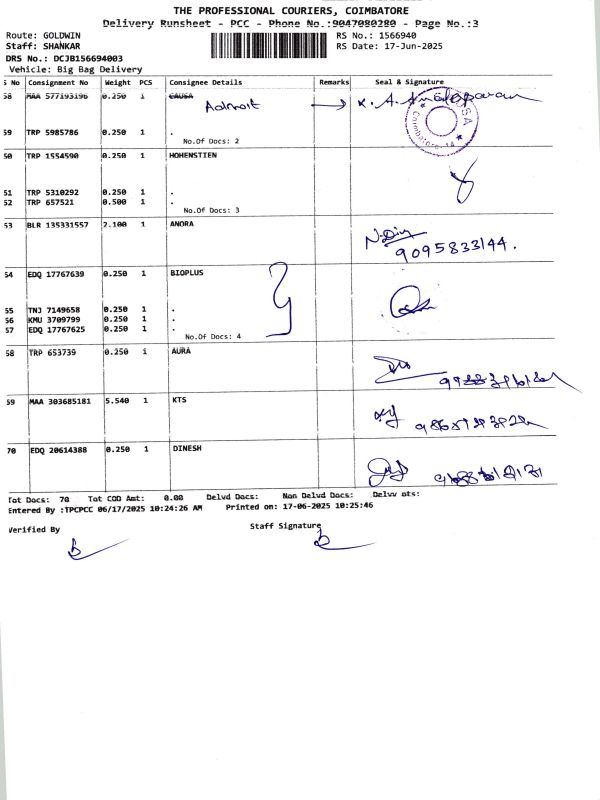 THE PROFESSIONAL COURIERS, COIMBATORE
Delivery Runsheet - PCC - Phone No.:9047080280 - Page No.:3
Route: GOLDWIN RS No.: 1566940
Staff: SHANKAR RS Date: 17-Jun-2025
DRS No.: DCJB156694003
Vehicle: Big Bag Delivery
S No Consignment No Weight PCS Consignee Details Remarks Seal & Signature
58 MAA 577193196 0.250 1 CAUSA
59 TRP 5985786 0.250 1 .
No.Of Docs: 2
50 TRP 1554590 0.250 1 HOHENSTIEN
51 TRP 5310292 0.250 1 .
52 TRP 657521 0.500 1 .
No.Of Docs: 3
53 BLR 135331557 2.100 1 ANORA
9095833144.
54 EDQ 17767639 0.250 1 BIOPLUS
55 TNJ 7149658 0.250 1 .
56 KMU 3709799 0.250 1 .
57 EDQ 17767625 0.250 1 .
No.Of Docs: 4
58 TRP 653739 0.250 1 AURA
59 MAA 303685181 5.540 1 KTS
70 EDQ 20614388 0.250 1 DINESH
Tot Docs: 70 Tot COD Amt: 0.00 Delvd Docs: Non Delvd Docs:
Entered By :TPCPCC 06/17/2025 10:24:26 AM Printed on: 17-06-2025 10:25:46
Verified By Staff Signature